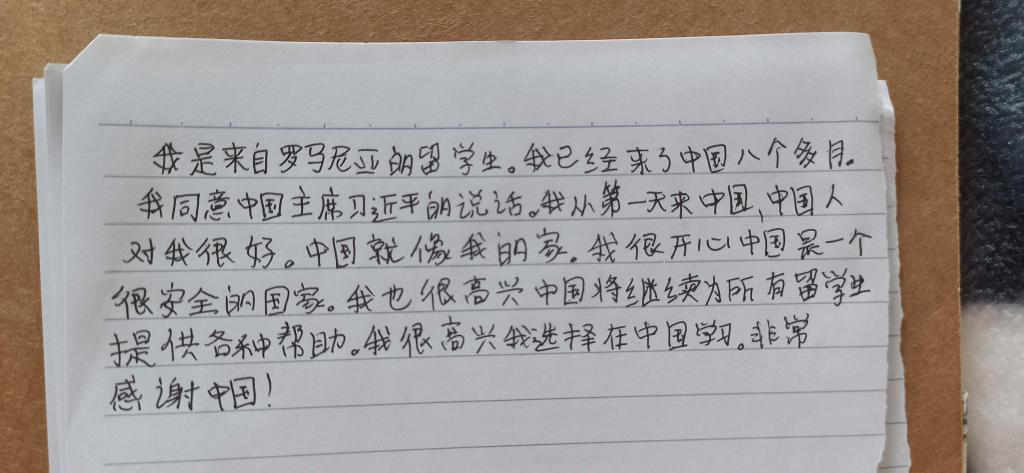 我是来自罗马尼亚的留学生。我已经来了中国八个多月。
我同意中国主席习近平的说话。我从第一天来中国,中国人
对我很好。中国就像我的家。我很开心中国是一个
很安全的国家。我也很高兴中国将继续为所有留学生
提供各种帮助。我很高兴我选择在中国学习。非常
感谢中国!